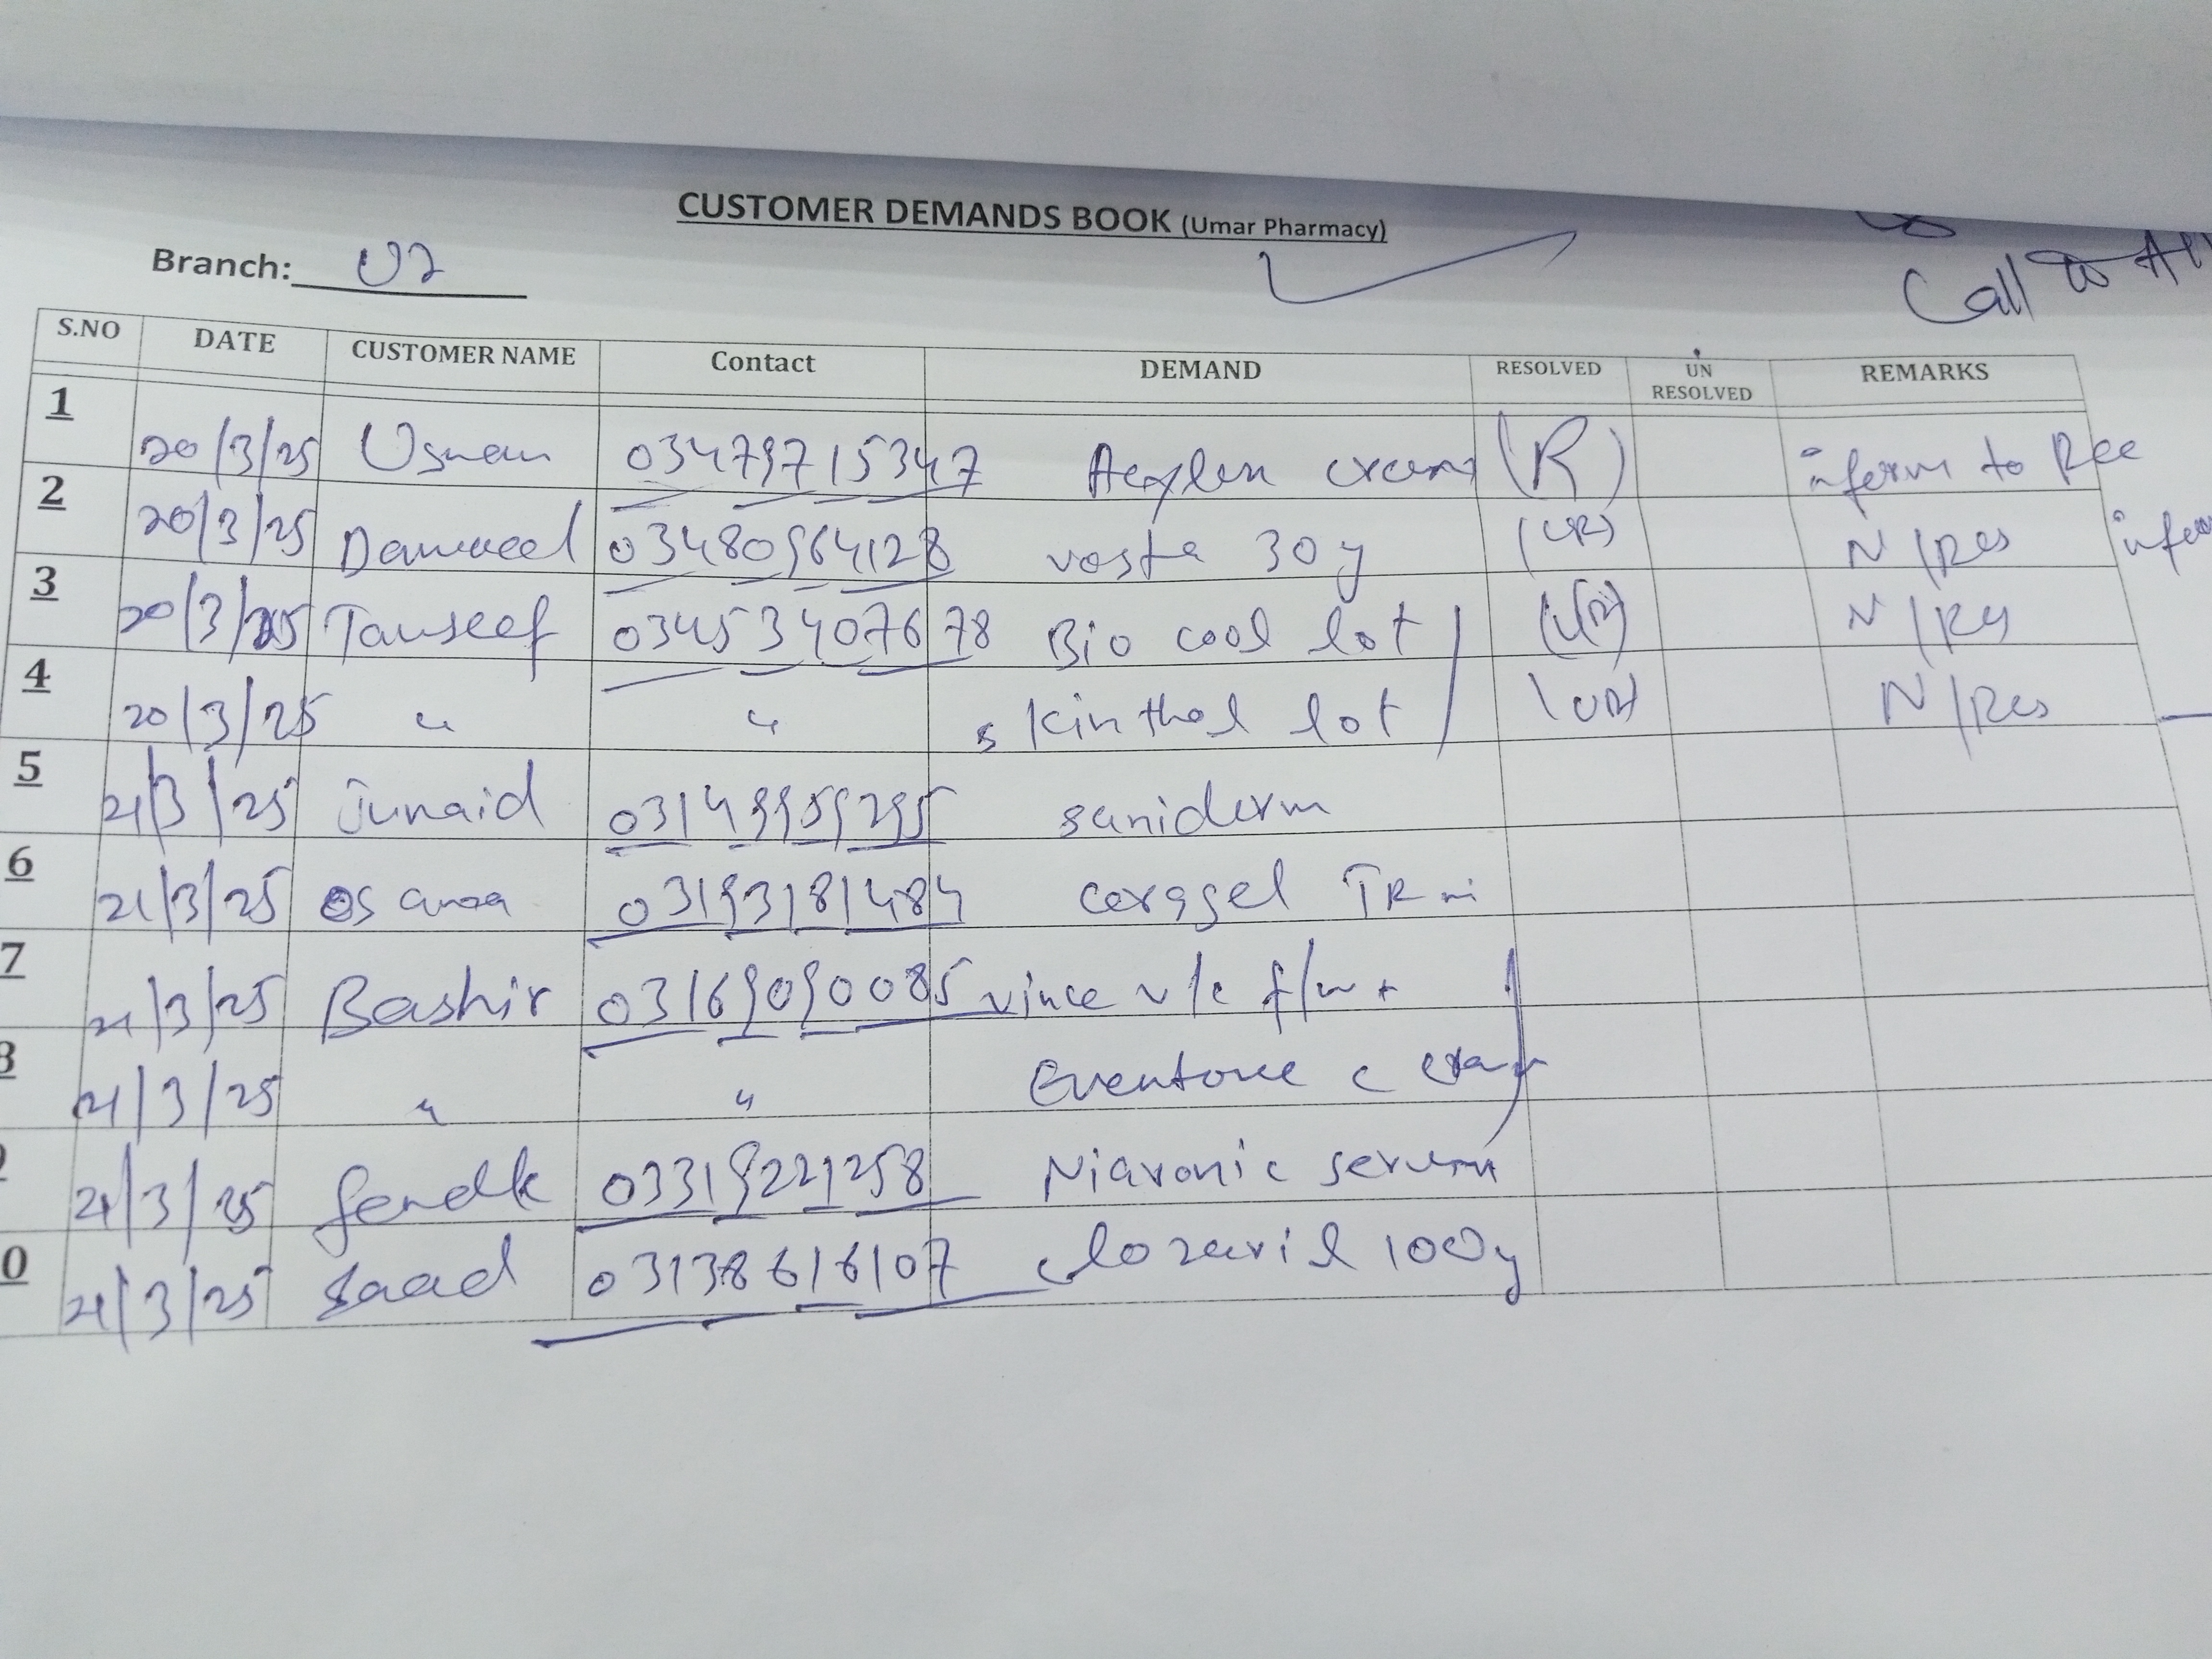 CUSTOMER DEMANDS BOOK (Umar Pharmacy)
Call to
Branch: U7
S.NO DATE CUSTOMER NAME Contact DEMAND RESOLVED UN RESOLVED REMARKS
1 20/3/25 Usman 03479715347 cream (R) inform to Rec
2 20/3/25 03480964128 vosta 30g (UR) N/Res
3 20/3/25 Tauseef 03453407678 Bio cool lot (UR) N/Res
4 20/3/25 " " skinthol lot (UR) N/Res
5 21/3/25 Junaid 03149959295 saniderm
6 21/3/25 03193181484 coragel
7 21/3/25 Bashir 03169090085 vince v/c f/w +
21/3/25 " " Eventone c cream
21/3/25 03319221258 Niaronic serum
0 21/3/25 Saad 03138616107 clozaril 100g